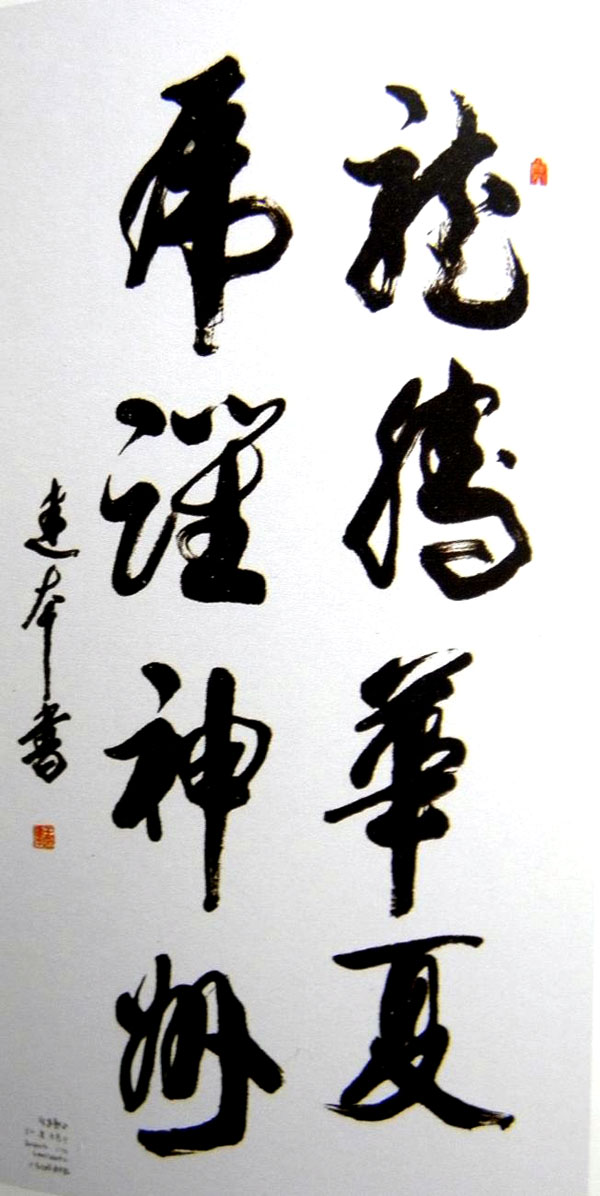 龍騰華夏
虎躍神州
建本書